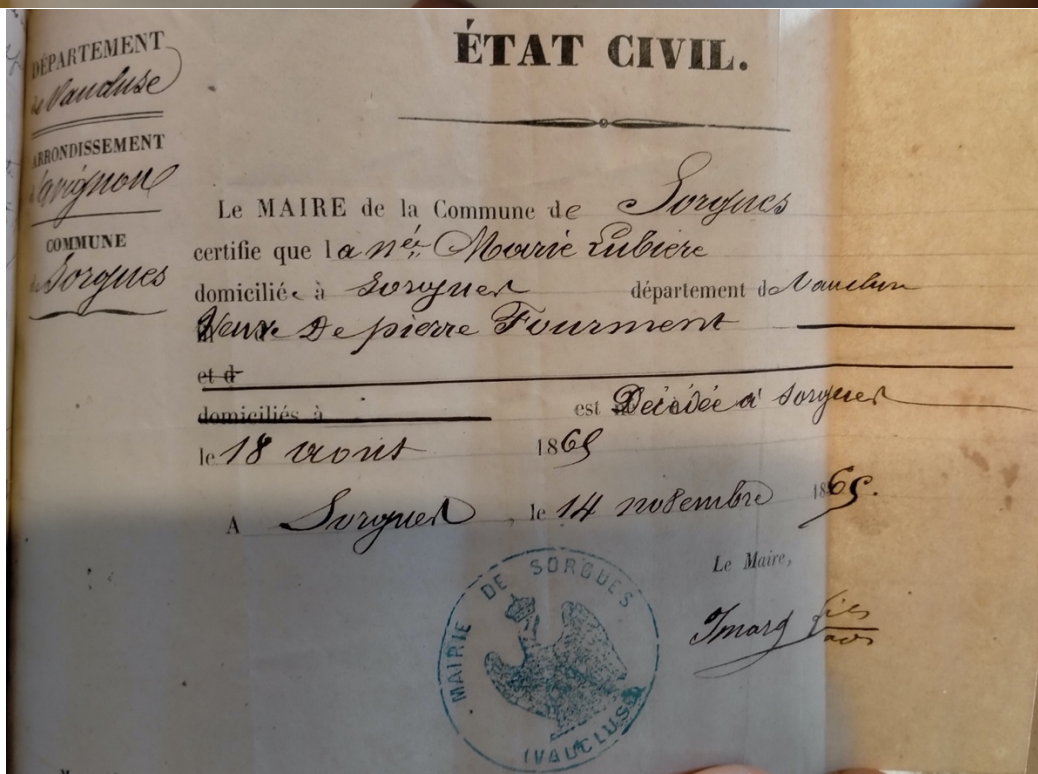 DÉPARTEMENT
de Vaucluse
ARRONDISSEMENT
d'avignon
COMMUNE
de Sorgues
ÉTAT CIVIL.
Le MAIRE de la Commune de Sorgues
certifie que la née Marie Lubière
domiciliée à Sorgues département de Vaucluse
Veuve De pierre Fourment
et d
domiciliés à est Décédée à Sorgues
le 18 août 1865
A Sorgues, le 14 novembre 1865.
Le Maire,
fils
MAIRIE DE SORGUES
(VAUCLUSE)